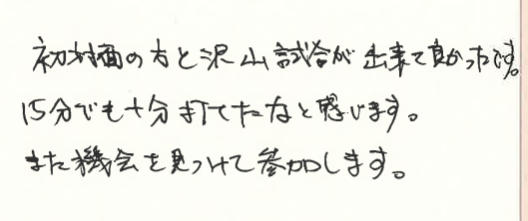 初対面の方と沢山試合が出来て良かったです。
15分でも十分打てたなと感じます。
また機会を見つけて参加します。